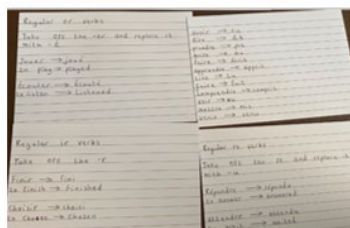 Regular er verbs
Take off the -er and replace it
with -é
Jouer → joué
to play → played
Écouter → Écouté
to listen → listened
avoir → eu
dire → dit
prendre → pris
faire → fait
apprendre → appris
lire → lu
comprendre → compris
voir → vu
mettre → mis
Regular ir verbs
Take off the -r
Finir → fini
to finish → finished
Choisir → choisi
to choose → chosen
Regular re verbs
Take off the re and replace it
with -u
Répondre → répondu
to answer → answered
Attendre → attendu
→ waited